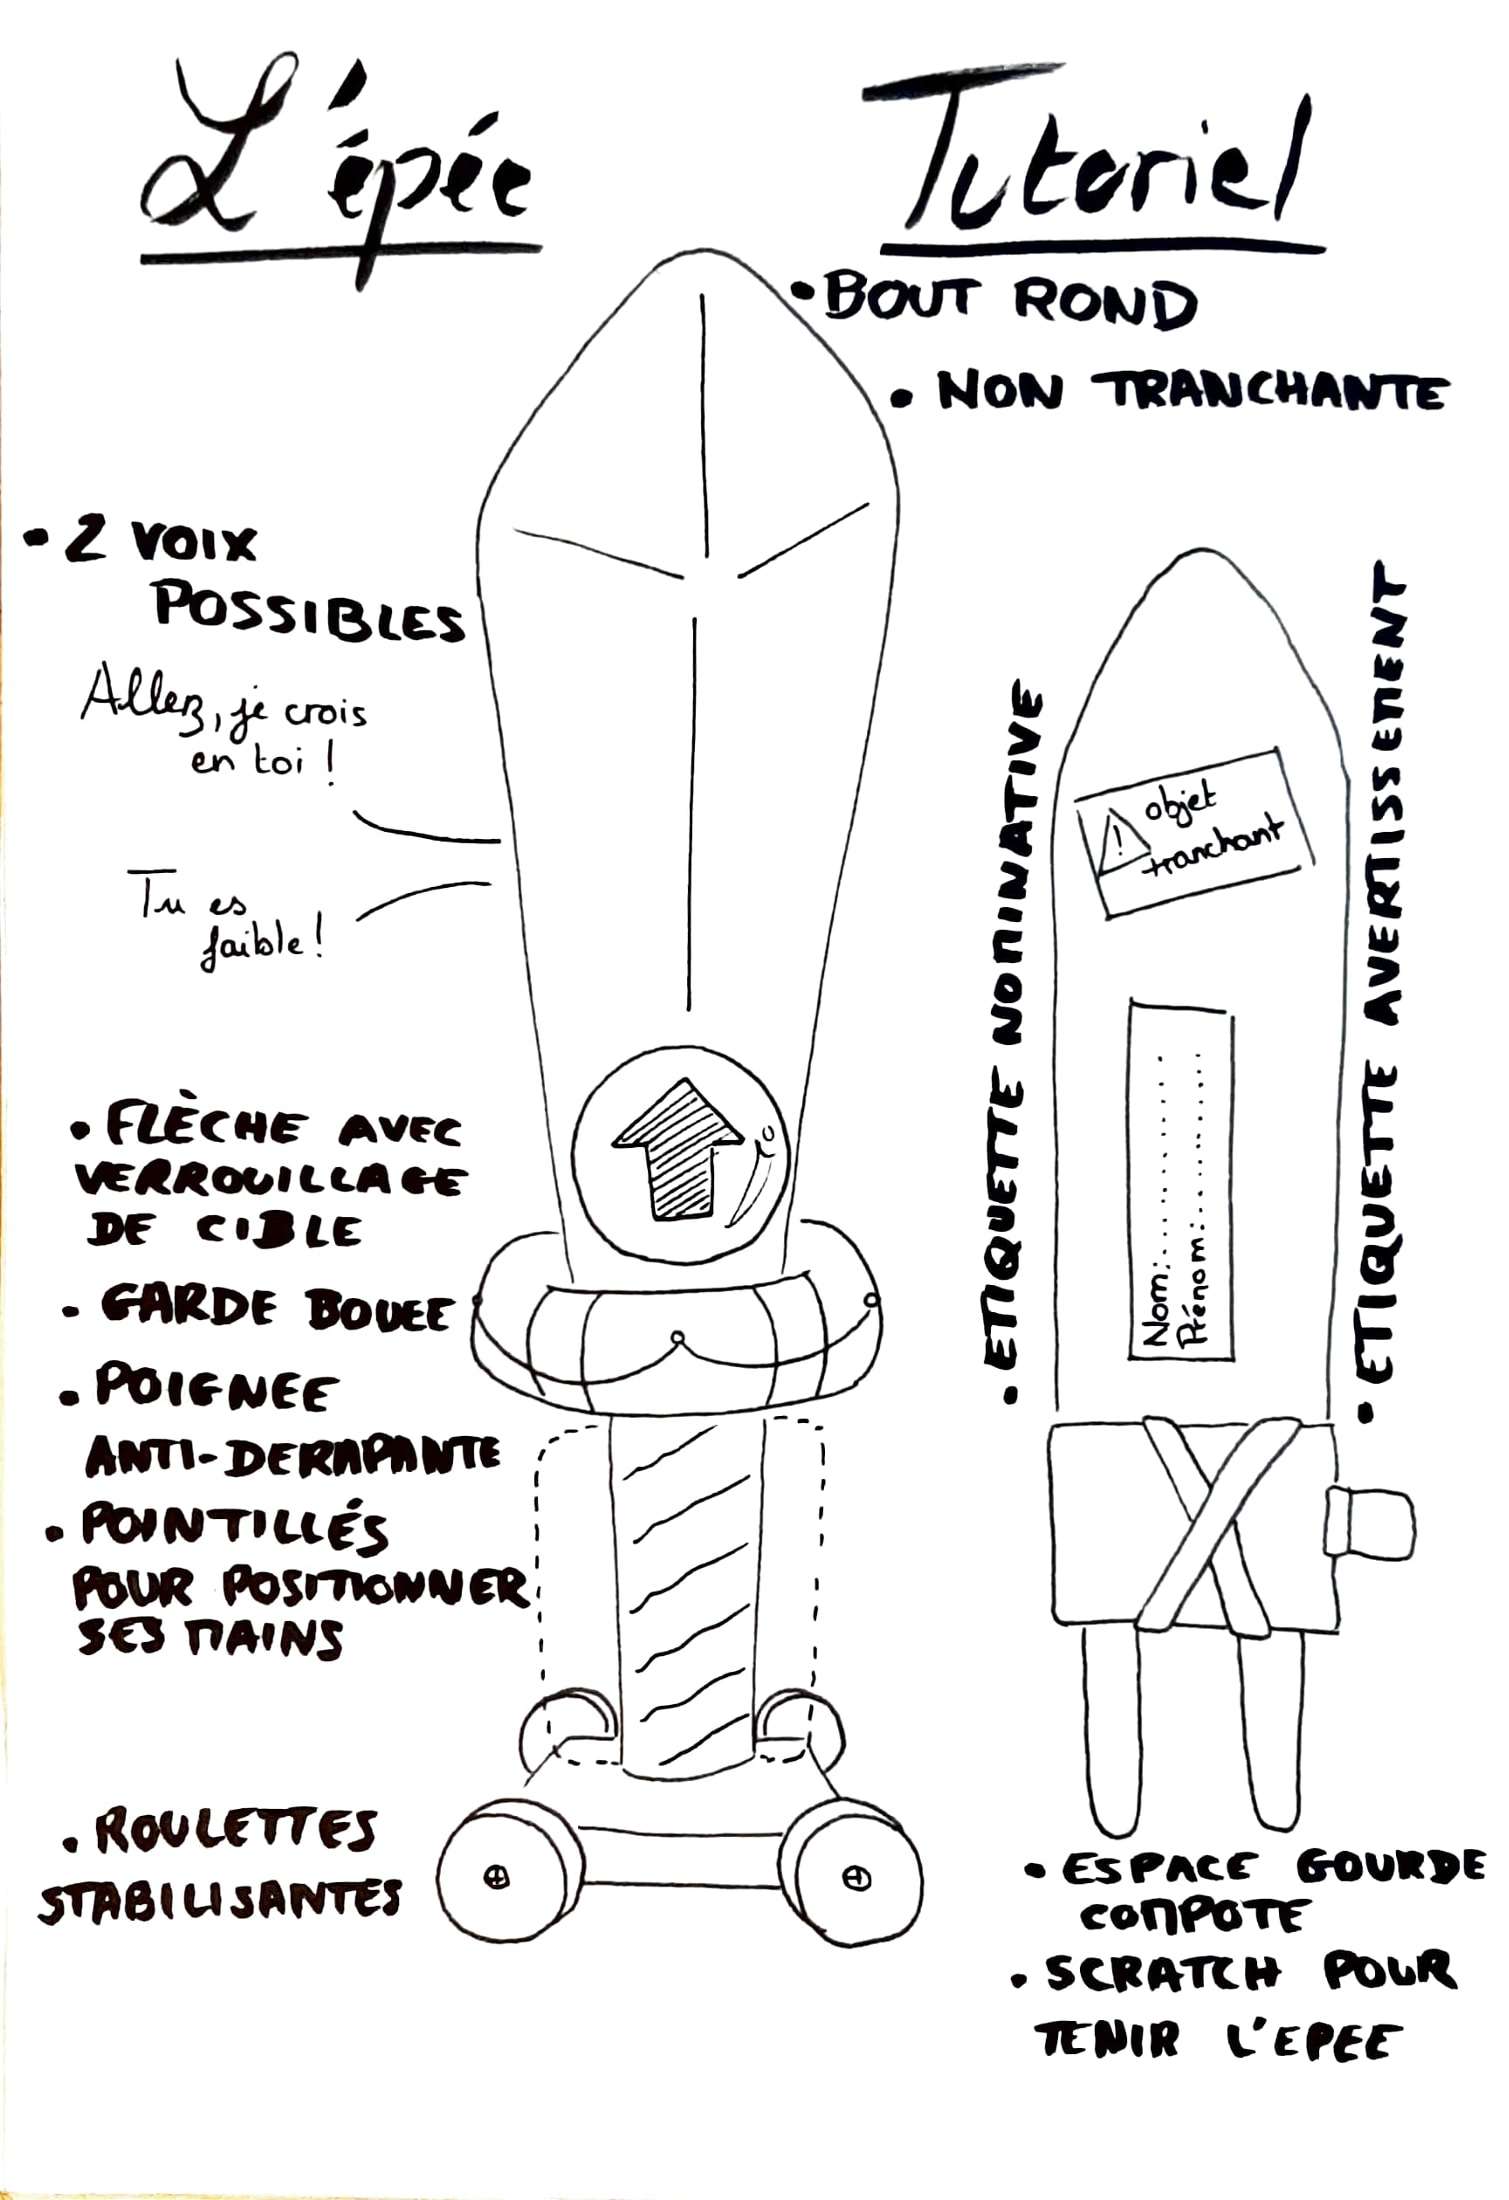 L'épée
Tutoriel
• BOUT ROND
• NON TRANCHANTE
• 2 VOIX
POSSIBLES
Allez, je crois
en toi !
Tu es
faible !
• FLÈCHE AVEC
VERROUILLAGE
DE CIBLE
• GARDE BOUEE
• POIGNEE
ANTI-DERAPANTE
• POINTILLÉS
POUR POSITIONNER
SES MAINS
• ROULETTES
STABILISANTES
• ETIQUETTE NOMINATIVE
! objet
tranchant
Nom:..............
Prénom:..............
• ETIQUETTE AVERTISSEMENT
• ESPACE GOURDE
COMPOTE
• SCRATCH POUR
TENIR L'EPEE